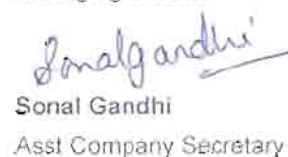 Sonalgandhi
Sonal Gandhi
Asst Company Secretary